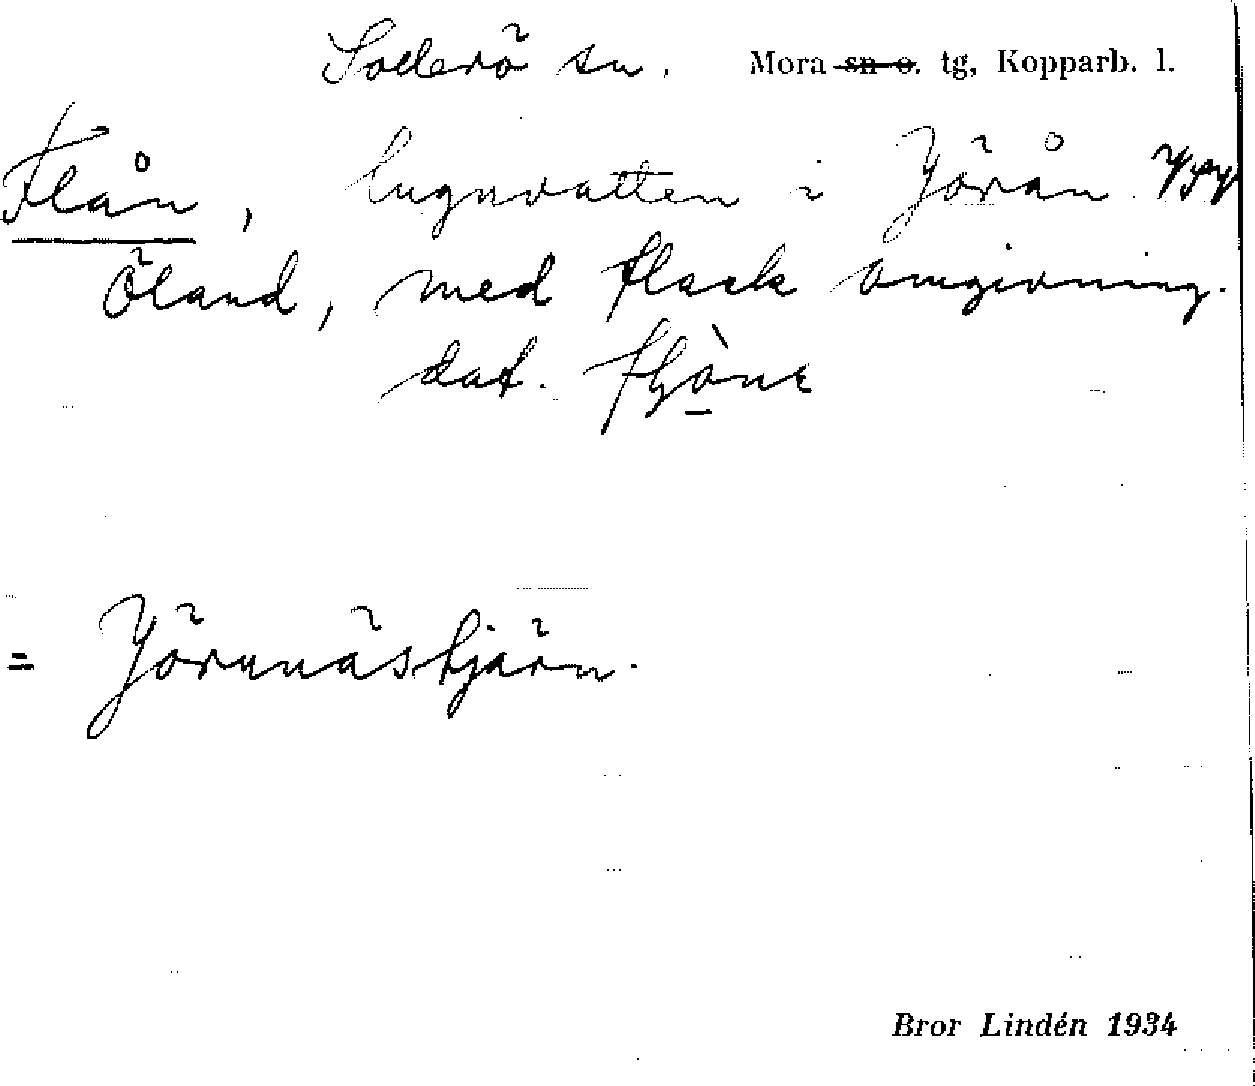 Sollerö sn. Mora sn o. tg, Kopparb. l.
Flån, lugnvatten i Yörån
Öland, med flack omgivning.
dat. fḷò̱ne
= Yörnnästjärn.
Bror Lindén 1934